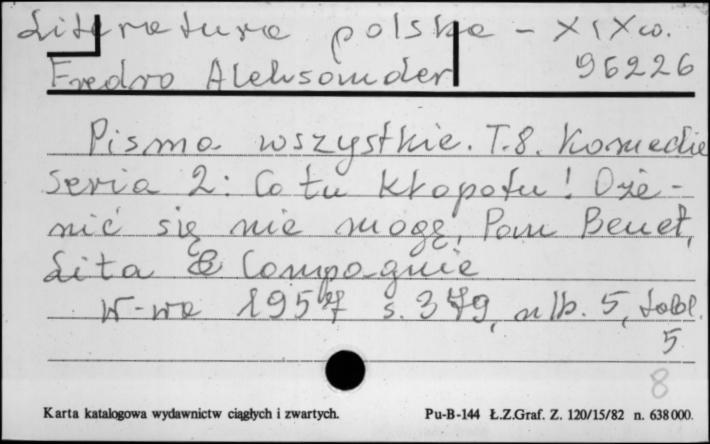 Literatura polska - XIX w.
Fredro Aleksander 96226
Pisma wszystkie. T.8. Komedie
seria 2: Co tu kłopotu! Oże-
nić się nie mogę, Pan Benet,
Lita & Compagnie
W-wa 1957 s. 379, nlb. 5, tabl.
5
8
Karta katalogowa wydawnictw ciągłych i zwartych. Pu-B-144 Ł.Z.Graf. Z. 120/15/82 n. 638000.